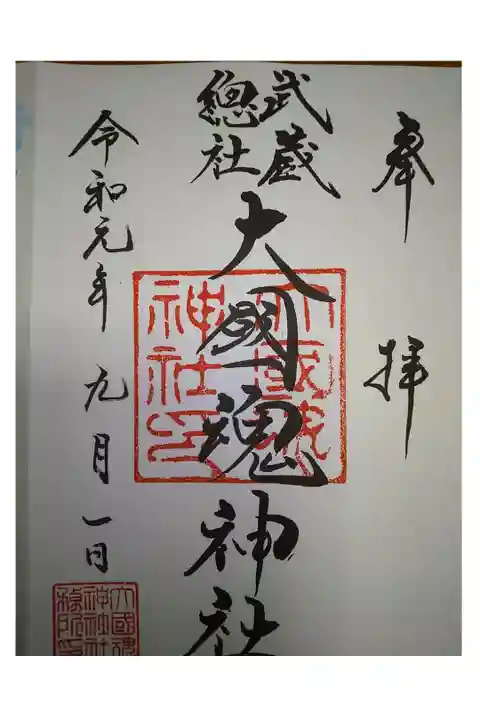 奉拝
武蔵
總社
大國魂神社
令和元年九月一日
大國魂
神社印
大國魂
神社